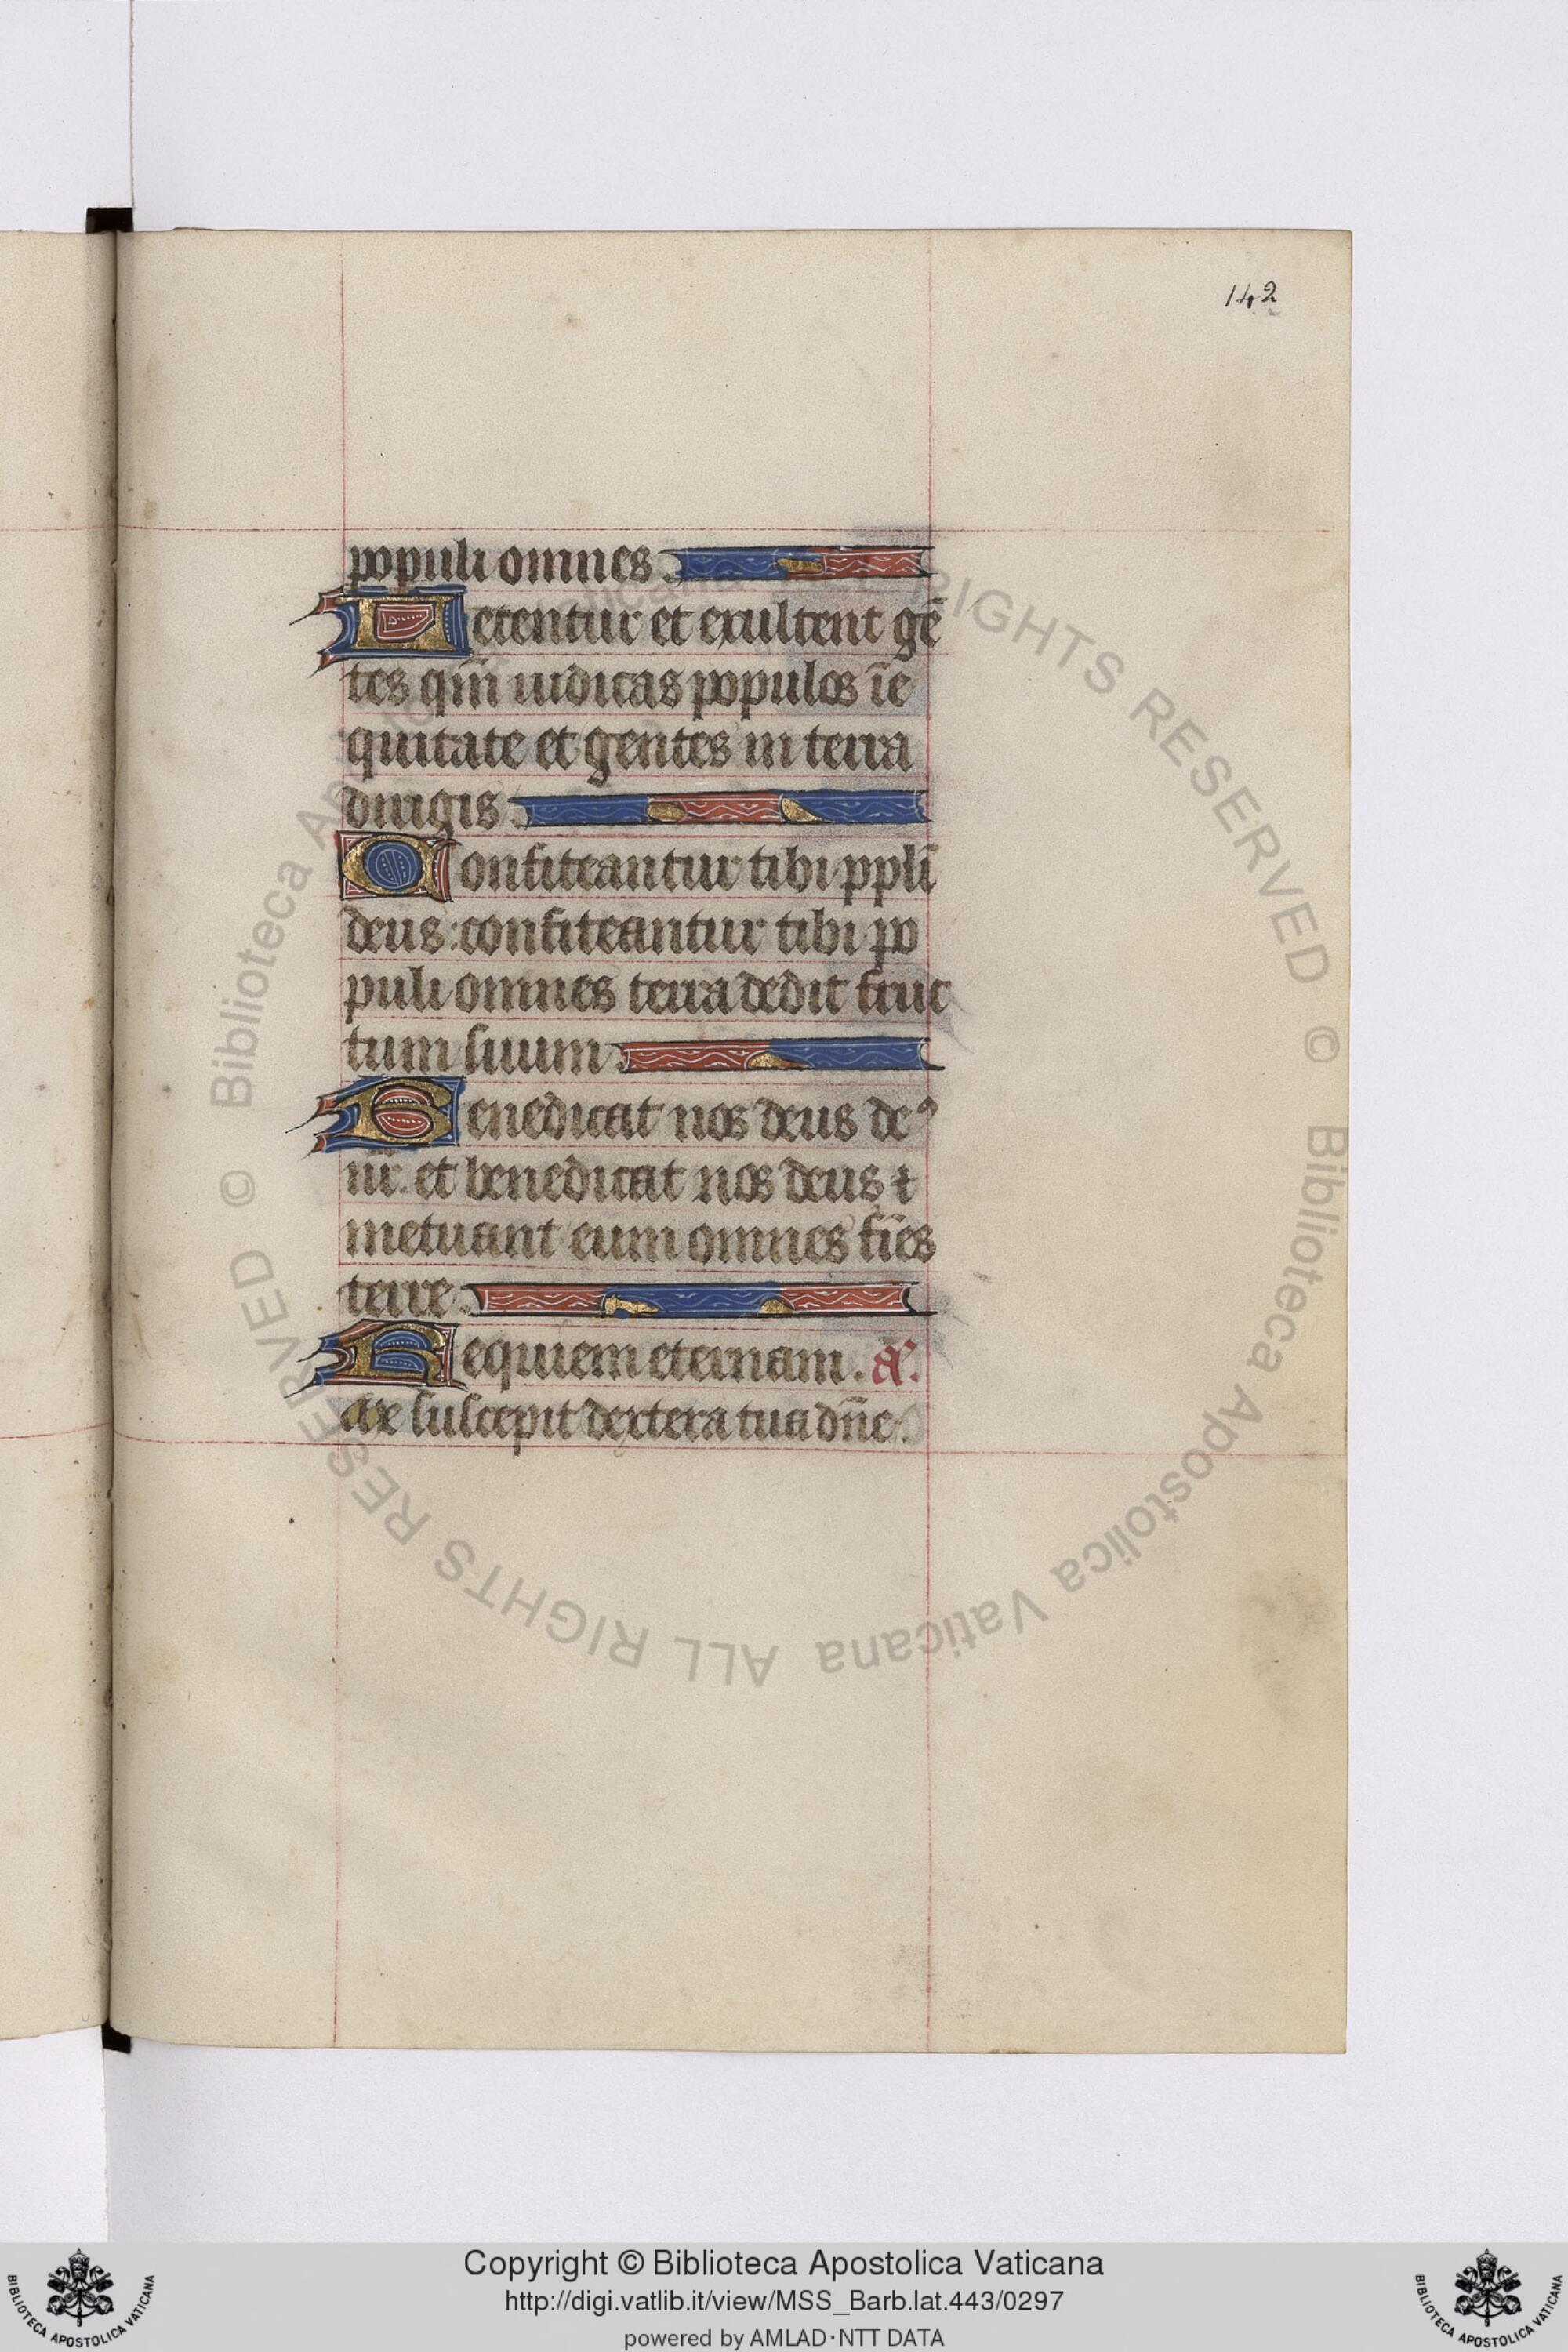 142
populi omnes.
Letentur et exultent gē
tes qm̄ iudicas populos ī e
quitate et gentes in terra
dirigis.
Confiteantur tibi ppli̅
deus: confiteantur tibi po
puli omnes terra dedit fruc
tum suum.
Benedicat nos deus deꝰ
nr̄. et benedicat nos deus ⁊
metuant eum omnes fi̅es
terre.
Requiem eternam. añ.
Me suscepit dextera tua dn̄e.
© Biblioteca Apostolica Vaticana ALL RIGHTS RESERVED © Biblioteca Apostolica Vaticana ALL RIGHTS RESERVED
Copyright © Biblioteca Apostolica Vaticana
http://digi.vatlib.it/view/MSS_Barb.lat.443/0297
powered by AMLAD·NTT DATA
BIBLIOTECA APOSTOLICA VATICANA
BIBLIOTECA APOSTOLICA VATICANA